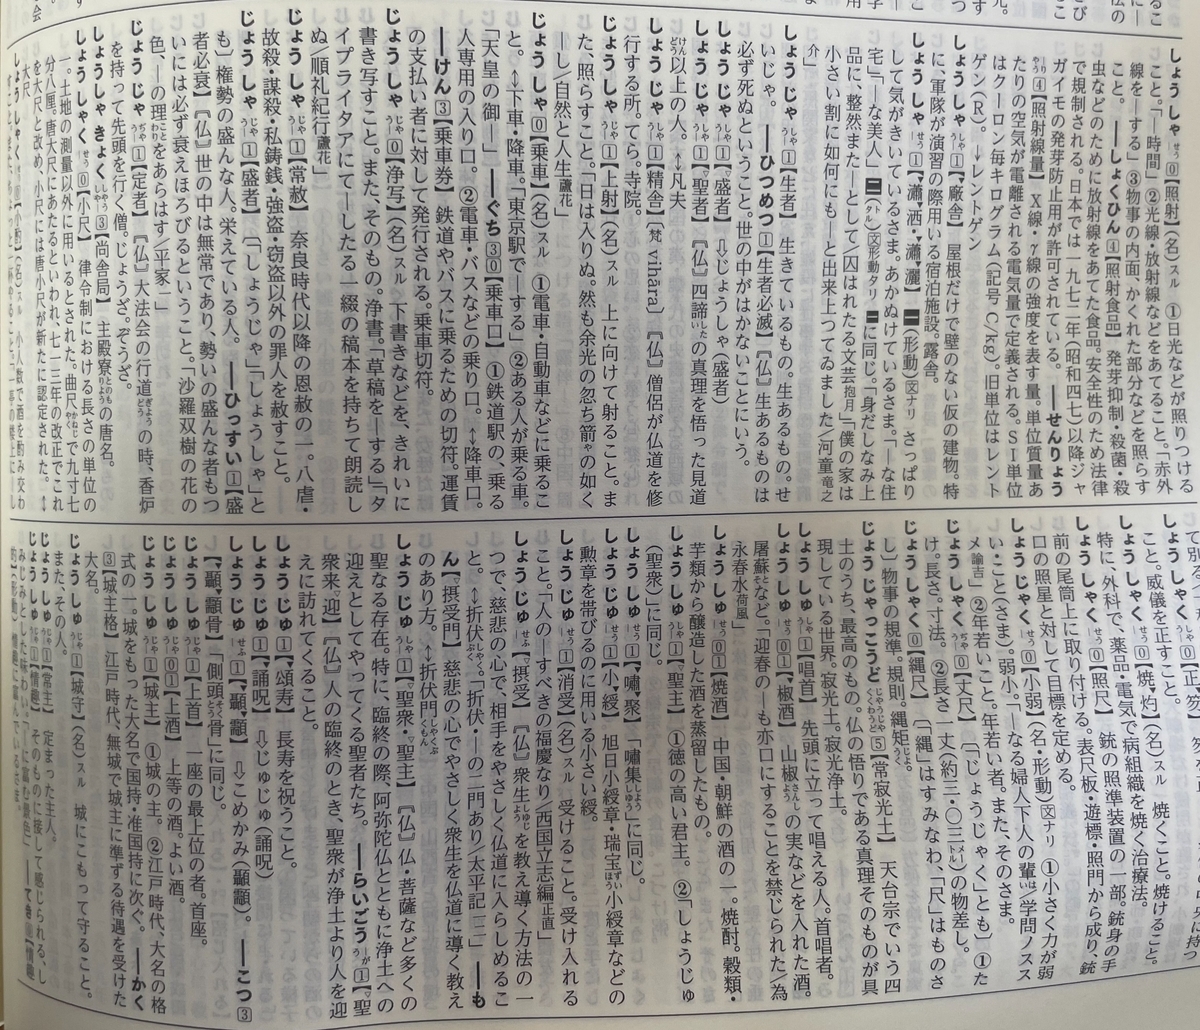 しょうしゃ【照射】(名)スル ①日光などが照りつける
こと。「―時間」②光線・放射線などをあてること。「赤外
線を―する」③物事の内面、かくれた部分などを照らす
こと。――しょくひん④【照射食品】発芽抑制・殺菌・殺
虫などのために放射線をあてた食品。安全性のため法律
で規制される。日本では一九七二年(昭和四七)以降ジャ
ガイモの発芽防止用が許可されている。――せんりょう
④【照射線量】X線・γ線の強度を表す量。単位質量あ
たりの空気が電離される電気量で定義される。SI単位
はクーロン毎キログラム(記号C/kg)。旧単位はレント
ゲン(R)。→レントゲン
しょうしゃ①【廠舎】屋根だけで壁のない仮の建物。特
に、軍隊が演習の際用いる宿泊施設。露舎。
しょうしゃ①【瀟洒・瀟灑】一(形動)文ナリ さっぱり
して気がきいているさま。あかぬけているさま。「―な住
宅」「―な美人」二(ト/タル)文形動タリ 一に同じ。「身だしなみ上
品に、整然また―として囚はれたる文芸抱月」「僕の家は
小さい割に如何にも―と出来上つてゐました/河童竜之
介」
しょうじゃ①【生者】生きているもの。生あるもの。せ
いじゃ。――ひつめつ①【生者必滅】『仏』生あるものは
必ず死ぬということ。世の中がはかないことにいう。
しょうじゃ①【盛者】⇩じょうしゃ(盛者)
しょうじゃ①【聖者】『仏』四諦の真理を悟った見道
以上の人。↔凡夫
しょうじゃ①【精舎】〔梵 vihāra〕『仏』僧侶が仏道を修
行する所。てら。寺院。
じょうしゃ⓪【上射】(名)スル 上に向けて射ること。ま
た、照らすこと。「日は入りぬ。然も余光の忽ち箭の如く
―し/自然と人生蘆花」
じょうしゃ⓪【乗車】(名)スル ①電車・自動車などに乗るこ
と。↔下車・降車。「東京駅で―する」②ある人が乗る車。
「天皇の御―」――ぐち③⓪【乗車口】①鉄道駅の、乗る
人専用の入り口。②電車・バスなどの乗り口。↔降車口。
――けん③【乗車券】鉄道やバスに乗るための切符。運賃
の支払い者に対して発行される。乗車切符。
じょうしゃ⓪【浄写】(名)スル 下書きなどを、きれいに
書き写すこと。また、そのもの。浄書。「草稿を―する」「タ
イプライタアにて―したる一綴の稿本を持ちて朗読し
ぬ/順礼紀行蘆花」
じょうしゃ①【常赦】奈良時代以降の恩赦の一。八虐・
故殺・謀殺・私鋳銭・強盗・窃盗以外の罪人を赦すこと。
じょうしゃ①【盛者】〔「しょうじゃ」「しょうしゃ」と
も〕権勢の盛んな人。栄えている人。――ひっすい①【盛
者必衰】『仏』世の中は無常であり、勢いの盛んな者もつ
いには必ず衰えほろびるということ。「沙羅双樹の花の
色、―の理をあらはす/平家一」
じょうしゃ①【定者】『仏』大法会の行道の時、香炉
を持って先頭を行く僧。じょうざ。ぞうざ。
しょうしゃきょく③【尚舎局】主殿寮の唐名。
しょうしゃく⓪【小尺】律令制における長さの単位の
一。土地の測量以外に用いるとされた。曲尺で九寸七
分八厘。唐大尺にあたるといわれ、七一三年の改正でこれ
を大尺と改め、小尺には唐小尺が新たに認定された。↔
大尺
こと。威儀を正すこと。
しょうしゃく⓪【焼灼】(名)スル 焼くこと。焼けること。
特に、外科で、薬品・電気で病組織を焼く治療法。
しょうしゃく⓪【照尺】銃の照準装置の一部。銃身の手
前の尾筒上に取り付ける。表尺板・遊標・照門から成り、銃
口の照星と対して目標を定める。
しょうじゃく⓪【小弱】(名・形動)文ナリ ①小さく力が弱
い・こと(さま)。弱小。「―なる婦人下人の輩は/学問ノスス
メ諭吉」②年若いこと。年若い者。また、そのさま。
じょうしゃく⓪【丈尺】〔「じょうじゃく」とも〕①た
け。長さ。寸法。②長さ一丈(約三・〇三メートル)の物差し。
じょうしゃく⓪【縄尺】〔「縄」はすみなわ、「尺」はものさ
し〕物事の規準。規則。縄矩。
じょうじゃっこうど⑤【常寂光土】天台宗でいう四
土のうち、最高のもの。仏の悟りである真理そのものが具
現している世界。寂光土。寂光浄土。
しょうしゅ①【唱首】先頭に立って唱える人。首唱者。
しょうしゅ⓪①【椒酒】山椒の実などを入れた酒。
屠蘇など。「迎春の―も亦口にすることを禁じられた/為
永春水荷風」
しょうしゅ⓪①【焼酒】中国・朝鮮の酒の一。焼酎。穀類・
芋類から醸造した酒を蒸留したもの。
しょうしゅ①【聖主】①徳の高い君主。②「しょうじゅ
(聖衆)」に同じ。
しょうしゅう①【嘯聚】「嘯集」に同じ。
しょうじゅ①【小綬】旭日小綬章・瑞宝小綬章などの
勲章を帯びるのに用いる小さい綬。
しょうじゅ①【消受】(名)スル 受けること。受け入れる
こと。「人の―すべきの福慶なり/西国立志編正直」
しょうじゅ①【摂受】『仏』衆生を教え導く方法の一
つで、慈悲の心で、相手をやさしく仏道に入らしめるこ
と。↔折伏。「折伏・―の二門あり/太平記一二」――も
ん【摂受門】慈悲の心でやさしく衆生を仏道に導く教え
のあり方。↔折伏門
しょうじゅ①【聖衆・聖主】『仏』仏・菩薩など多くの
聖なる存在。特に、臨終の際、阿弥陀仏とともに浄土への
迎えとしてやってくる聖者たち。――らいごう①【聖
衆来迎】『仏』人の臨終のとき、聖衆が浄土より人を迎
えに訪れてくること。
しょうじゅ①【頌寿】長寿を祝うこと。
しょうじゅ①【誦呪】⇩じゅじゅ(誦呪)
しょうじゅ①【顳顬】⇩こめかみ(顳顬)。――こつ③
【顳顬骨】「側頭骨」に同じ。
じょうしゅ①【上首】一座の最上位の者。首座。
じょうしゅ⓪①【上酒】上等の酒。よい酒。
じょうしゅ①【城主】①城の主。②江戸時代、大名の格
式の一。城をもった大名で国持・准国持に次ぐ。――かく
③【城主格】江戸時代、無城で城主に準ずる待遇を受けた
大名。
じょうしゅ①【城守】(名)スル 城にこもって守ること。
また、その人。
じょうしゅ①【常主】定まった主人。